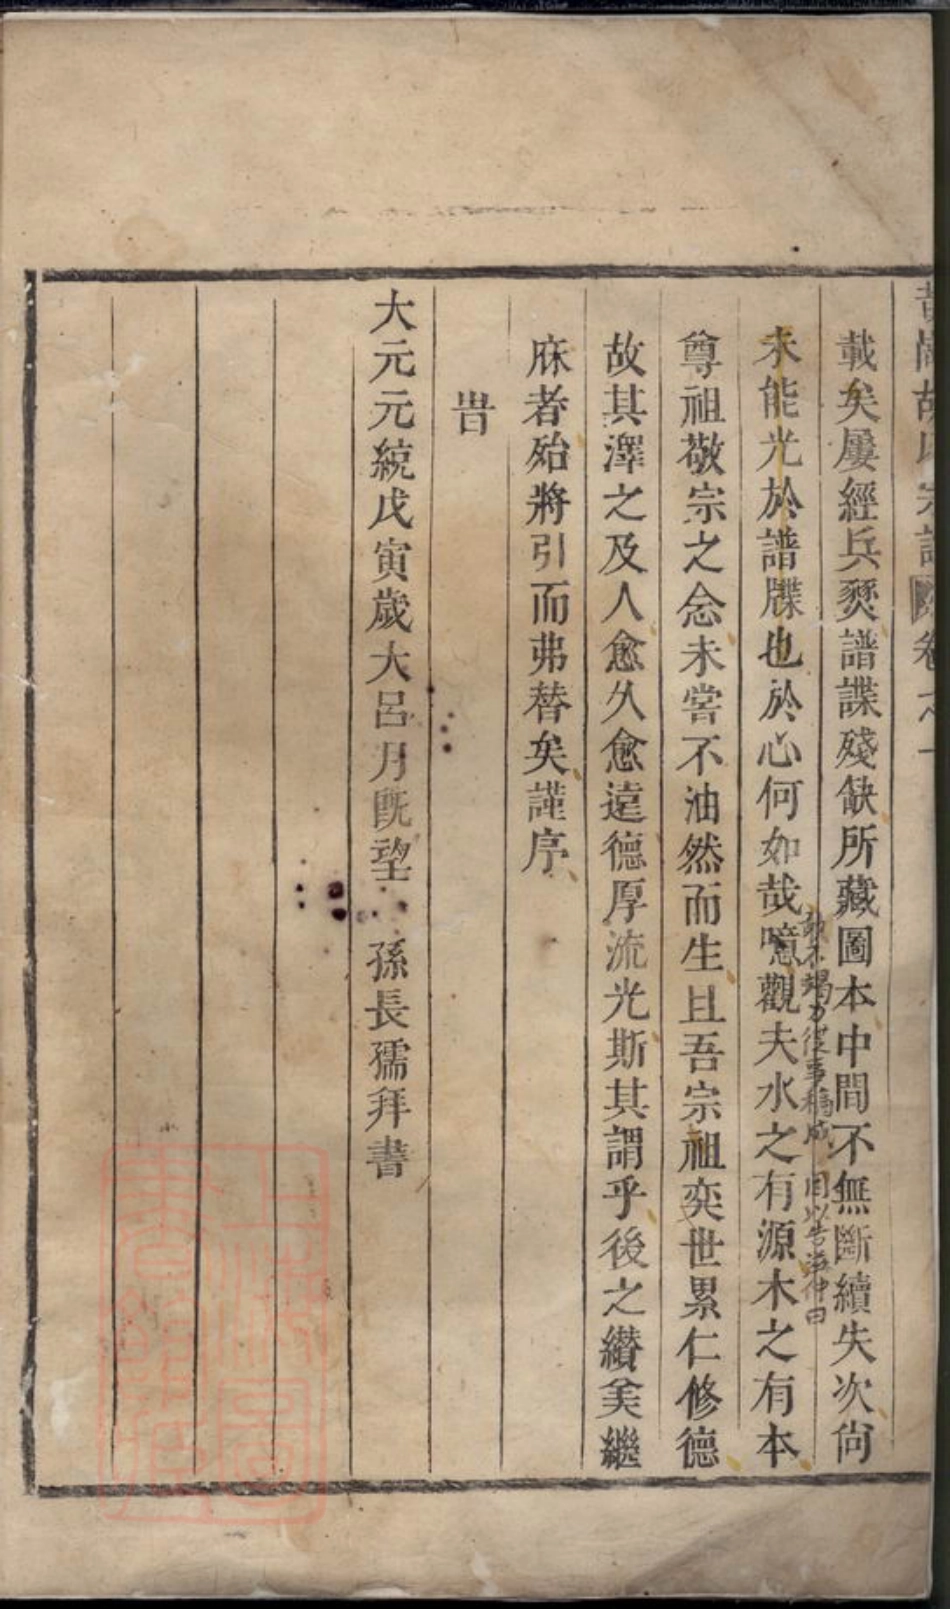 胡氏宗譜 卷之一
載矣屢經兵燹譜諜殘缺所藏圖本中間不無斷續失次尙
敢不竭力從事稿成 因以告
未能光於譜牒也於心何如哉噫觀夫水之有源木之有本
尊祖敬宗之念未嘗不油然而生且吾宗祖奕世累仁修德
故其澤之及人愈久愈遠德厚流光斯其謂乎後之纉美繼
庥者殆將引而弗替矣謹序
旹
大元元統戊寅歲大呂月旣望 孫長孺拜書
上海圖書館藏